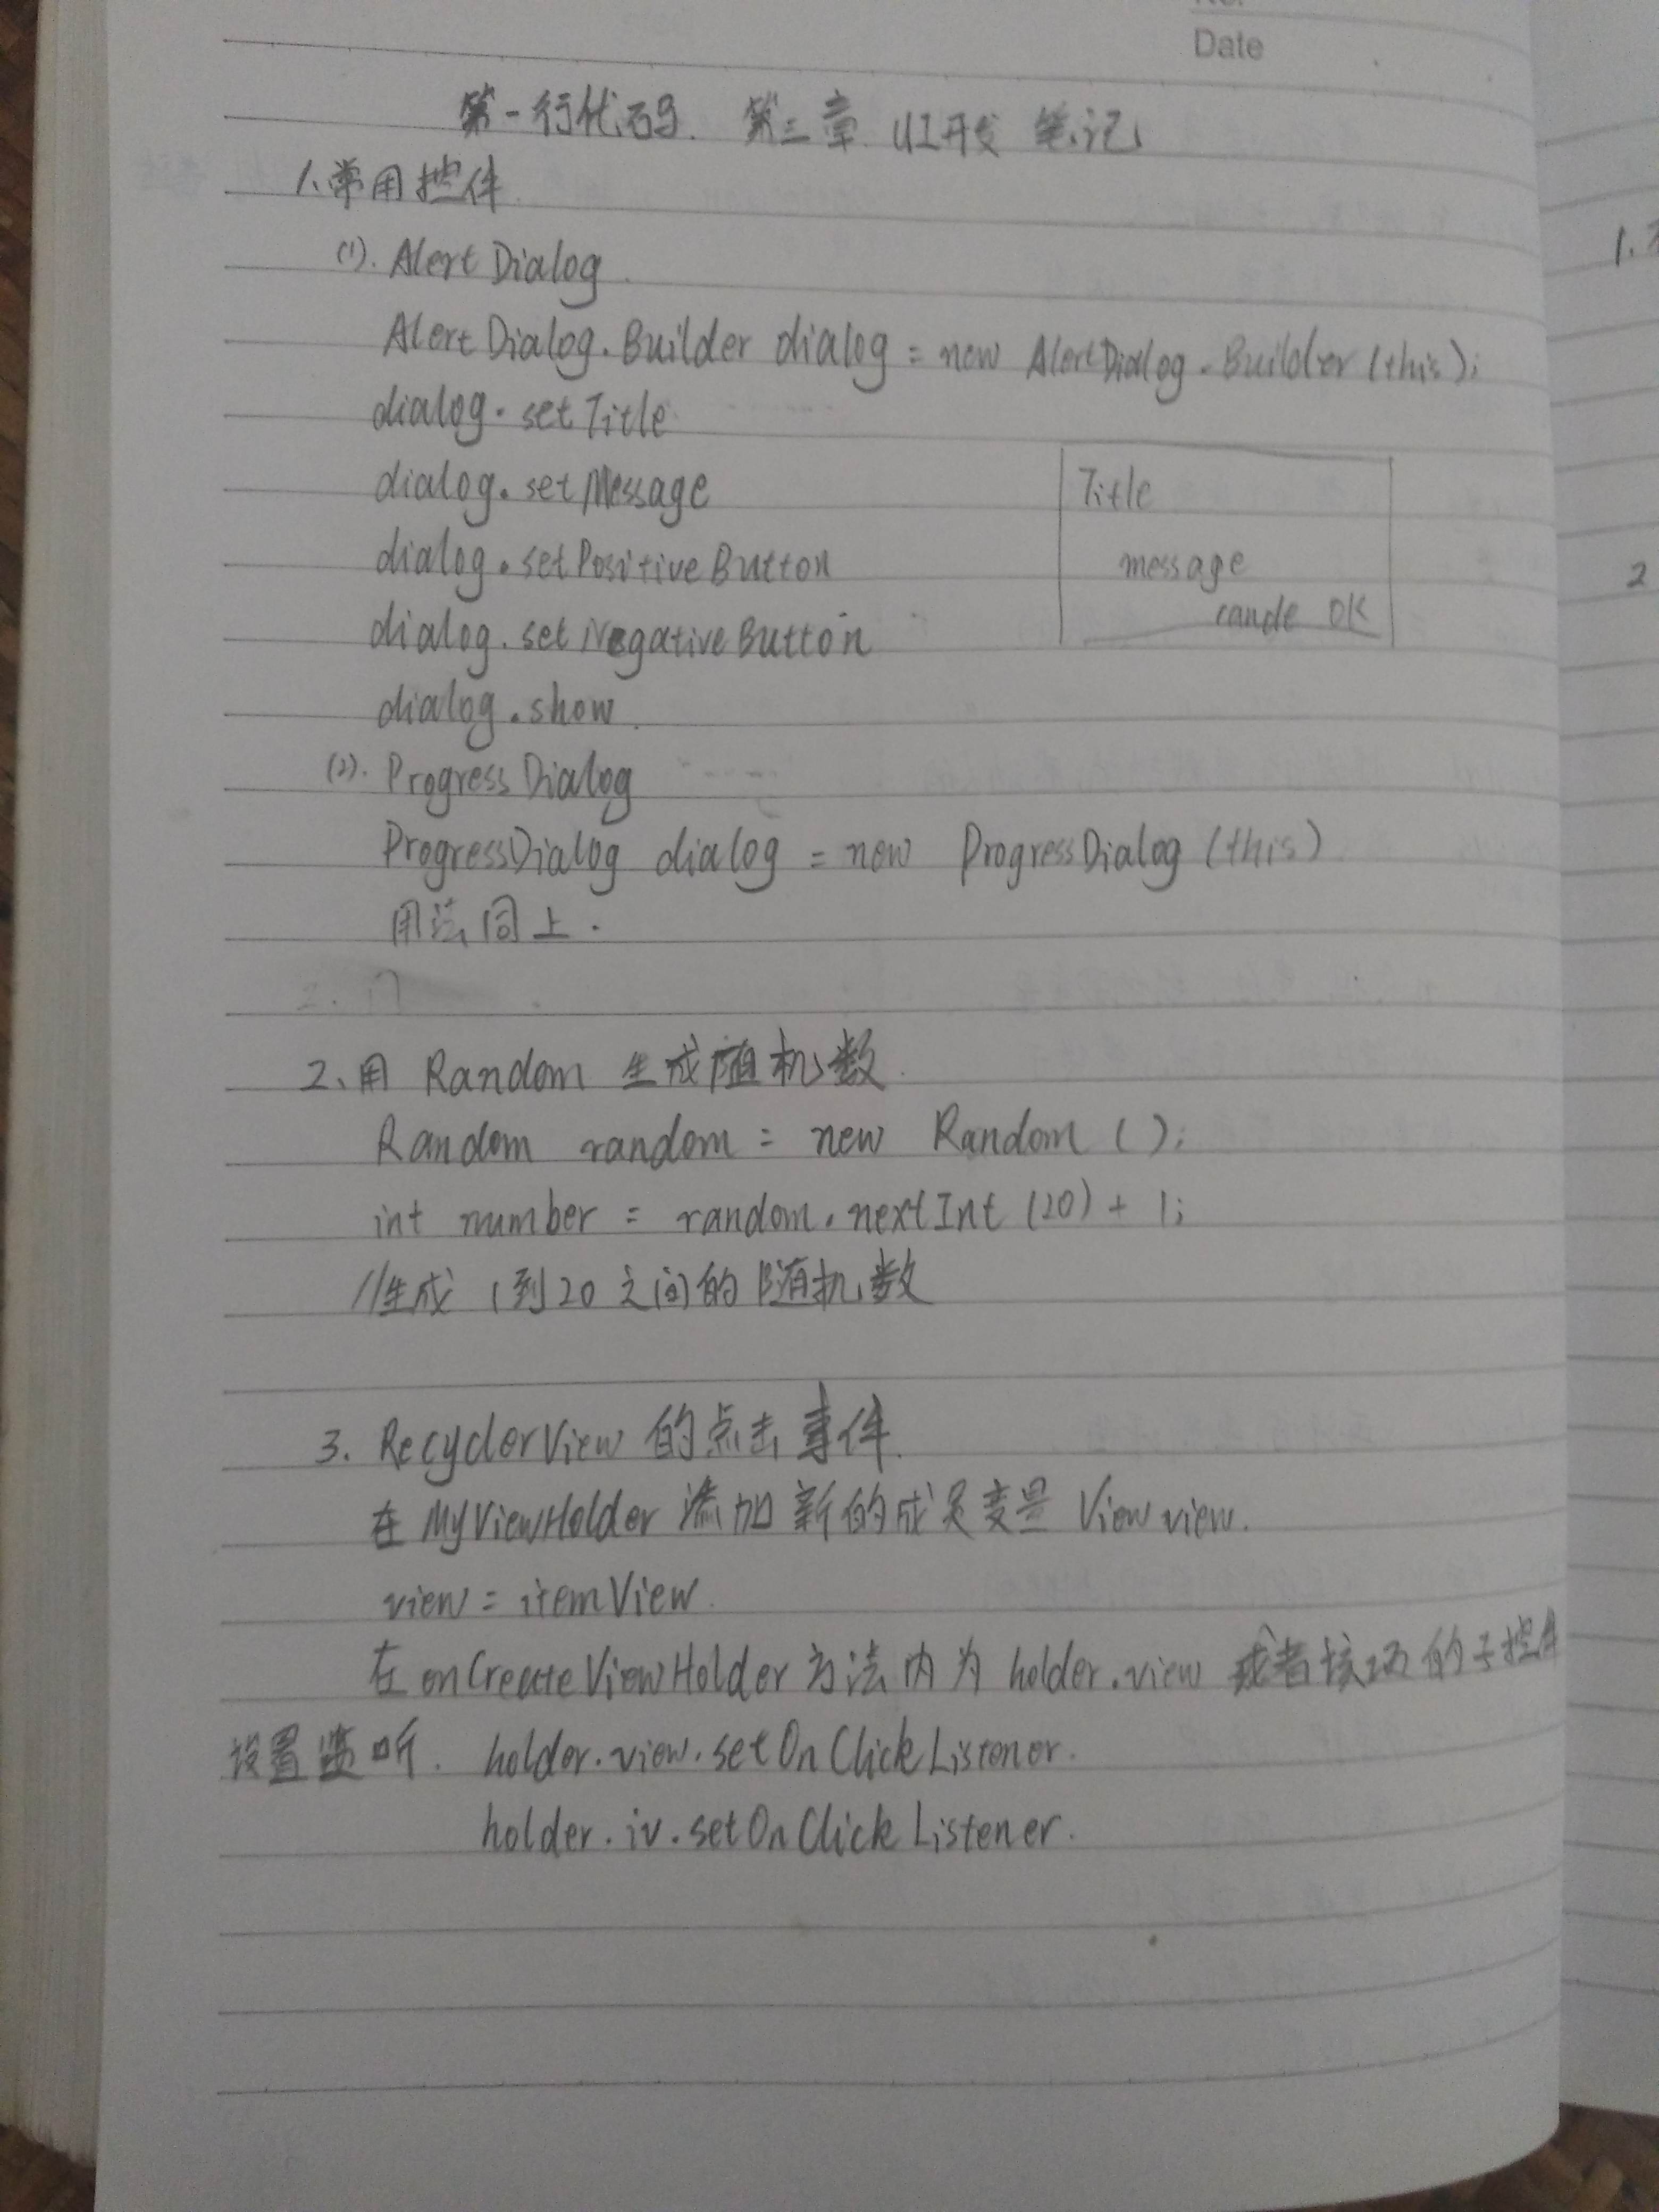 Date
第一行代码. 第三章 UI开发 笔记
1、常用控件
(1). AlertDialog
AlertDialog.Builder dialog = new AlertDialog.Builder (this);
dialog.setTitle
dialog.setMessage
dialog.setPositiveButton
dialog.setNegativeButton
dialog.show
Title
message
cancle OK
(2). ProgressDialog
ProgressDialog dialog = new ProgressDialog (this)
用法同上.
2、用 Random 生成随机数
Random random = new Random ();
int number = random.nextInt (20) + 1;
//生成 1到20 之间的随机数
3. RecyclerView 的点击事件
在 MyViewHolder 添加新的成员变量 View view.
view = itemView
在 onCreateViewHolder 方法内为 holder.view 或者该项的子控件
设置监听. holder.view.setOnClickListener.
holder.iv.setOnClickListener.
1.
2